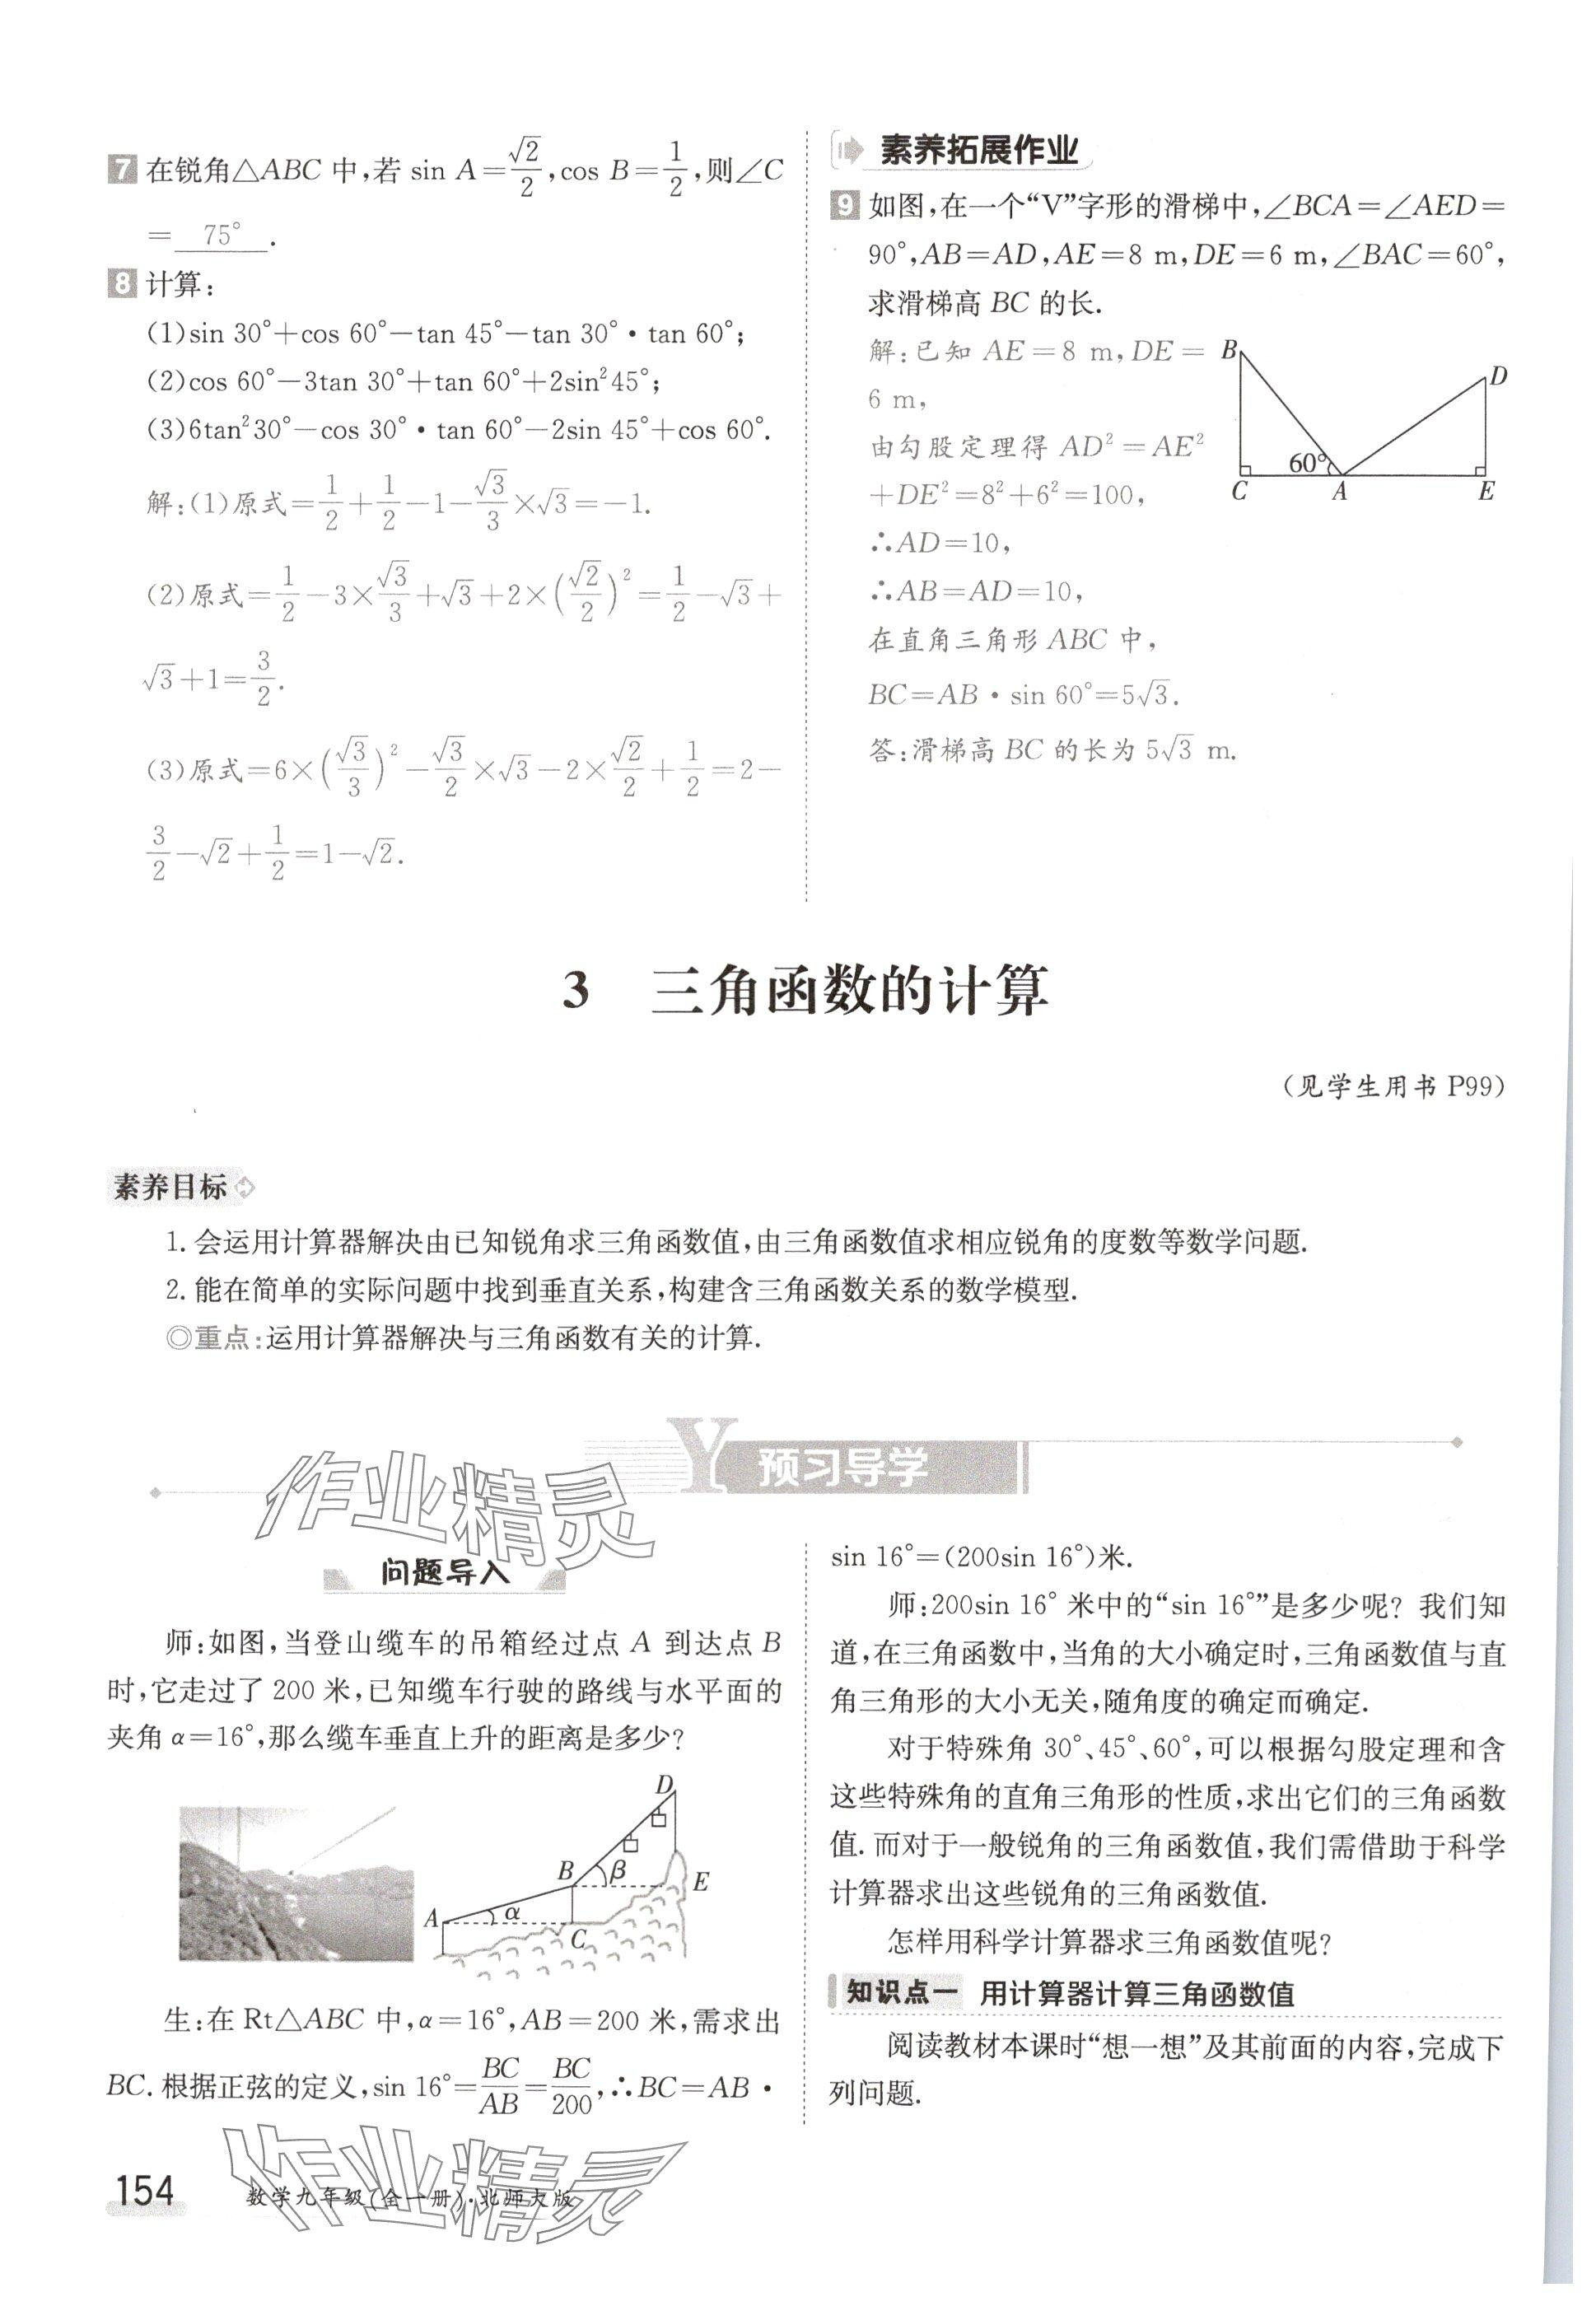 7 在锐角△ABC 中,若 sin A=√2/2,cos B=1/2,则∠C
= 75° .
8 计算:
(1)sin 30°+cos 60°−tan 45°−tan 30°·tan 60°;
(2)cos 60°−3tan 30°+tan 60°+2sin²45°;
(3)6tan²30°−cos 30°·tan 60°−2sin 45°+cos 60°.
解:(1)原式=1/2+1/2−1−√3/3×√3=−1.
(2)原式=1/2−3×√3/3+√3+2×(√2/2)²=1/2−√3+
√3+1=3/2.
(3)原式=6×(√3/3)²−√3/2×√3−2×√2/2+1/2=2−
3/2−√2+1/2=1−√2.
素养拓展作业
9 如图,在一个“V”字形的滑梯中,∠BCA=∠AED=
90°,AB=AD,AE=8 m,DE=6 m,∠BAC=60°,
求滑梯高 BC 的长.
解:已知 AE=8 m,DE=
6 m,
由勾股定理得 AD²=AE²
+DE²=8²+6²=100,
∴AD=10,
∴AB=AD=10,
在直角三角形 ABC 中,
BC=AB·sin 60°=5√3.
答:滑梯高 BC 的长为 5√3 m.
B
D
60°
C A E
3 三角函数的计算
(见学生用书 P99)
素养目标
1. 会运用计算器解决由已知锐角求三角函数值,由三角函数值求相应锐角的度数等数学问题.
2. 能在简单的实际问题中找到垂直关系,构建含三角函数关系的数学模型.
◎重点:运用计算器解决与三角函数有关的计算.
Y 预习导学
作业精灵
问题导入
师:如图,当登山缆车的吊箱经过点 A 到达点 B
时,它走过了 200 米,已知缆车行驶的路线与水平面的
夹角 α=16°,那么缆车垂直上升的距离是多少?
D
B β E
A α C
生:在 Rt△ABC 中,α=16°,AB=200 米,需求出
BC. 根据正弦的定义,sin 16°=BC/AB=BC/200,∴BC=AB·
sin 16°=(200sin 16°)米.
师:200sin 16° 米中的“sin 16°”是多少呢? 我们知
道,在三角函数中,当角的大小确定时,三角函数值与直
角三角形的大小无关,随角度的确定而确定.
对于特殊角 30°、45°、60°,可以根据勾股定理和含
这些特殊角的直角三角形的性质,求出它们的三角函数
值. 而对于一般锐角的三角函数值,我们需借助于科学
计算器求出这些锐角的三角函数值.
怎样用科学计算器求三角函数值呢?
知识点一 用计算器计算三角函数值
阅读教材本课时“想一想”及其前面的内容,完成下
列问题.
154 数学九年级(全一册)·北师大版
作业精灵